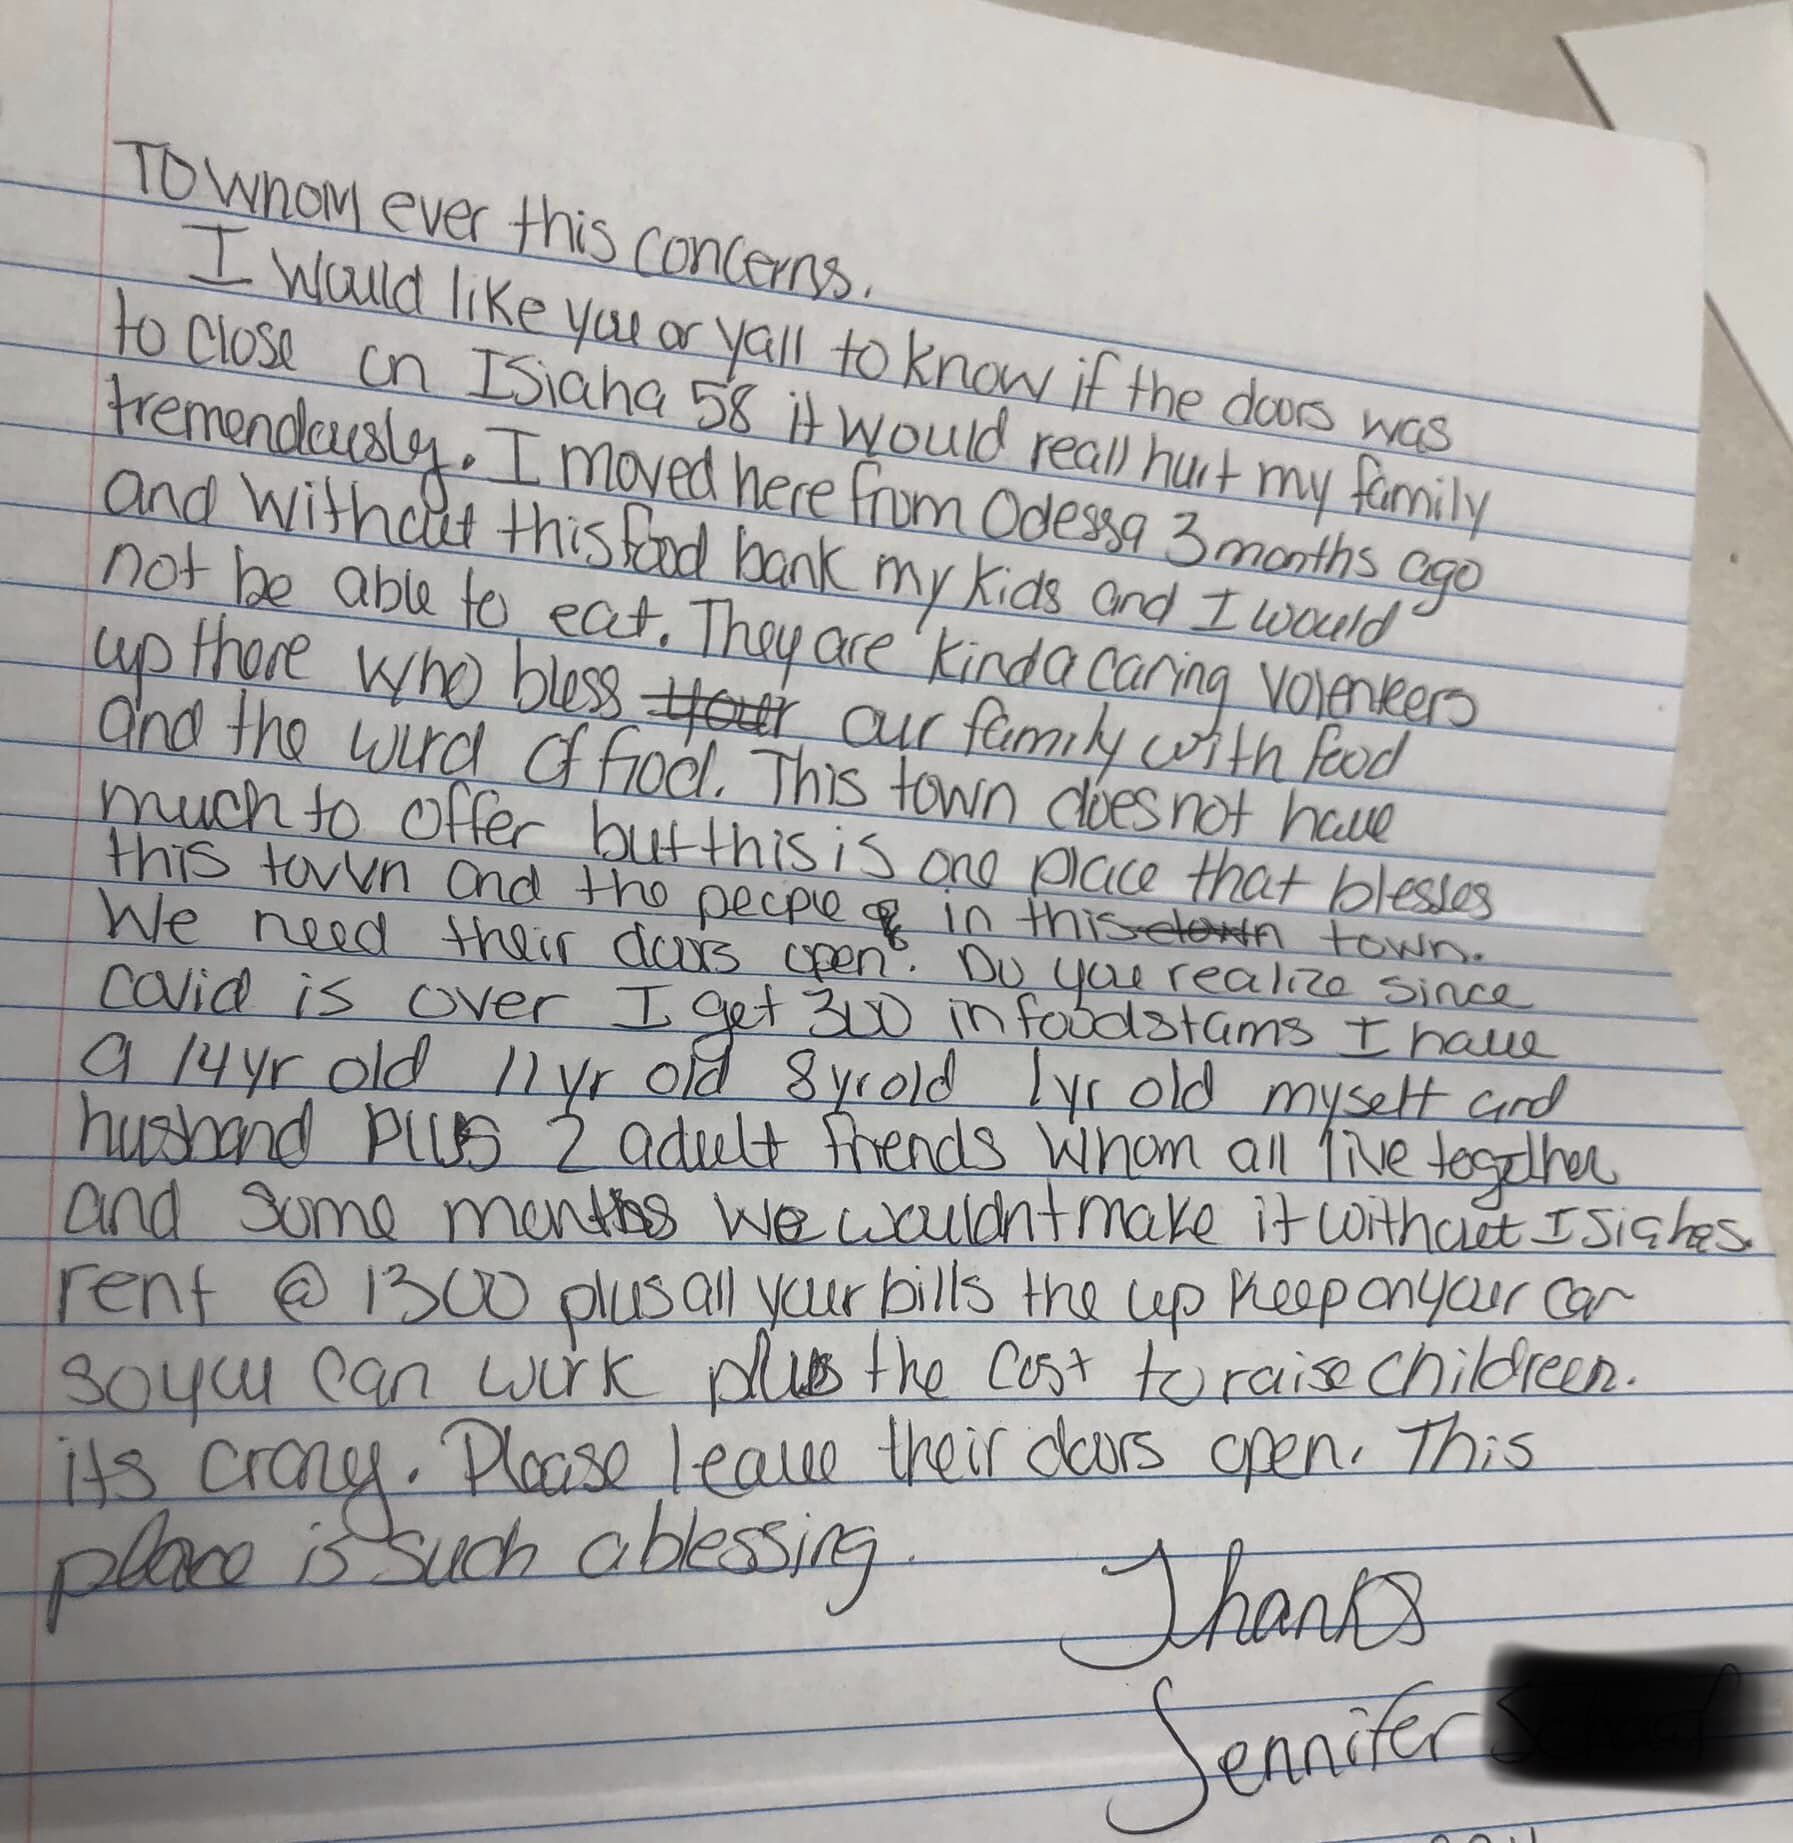 To whom ever this concerns.
I would like you or yall to know if the doors was
to close on ISiaha 58 it would reall hurt my family
tremendously. I moved here from Odessa 3 months ago
and without this food bank my kids and I would
not be able to eat. They are kind a caring volenteers
up there who bless your our family with food
and the word of God. This town does not have
much to offer but this is one place that blesses
this town and the people of in this down town.
We need their doors open. Do you realize since
covid is over I get 300 in foodstams I have
a 14 yr old 11 yr old 8 yr old 1 yr old myself and
husband plus 2 adult friends whom all live together
and some months we wouldnt make it without ISiahas.
rent @ 1300 plus all your bills the up keep on your car
so you can work plus the cost to raise childreen.
its crazy. Please leave their doors open. This
place is such a blessing.
Thanks
Jennifer